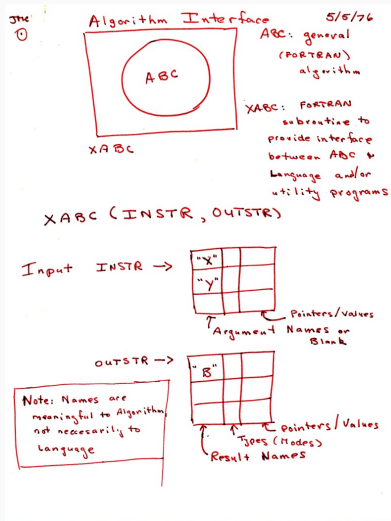 JMC
1
Algorithm Interface
5/5/76
ABC: general
(FORTRAN)
algorithm
ABC
XABC: FORTRAN
subroutine to
provide interface
between ABC &
Language and/or
utility programs
XABC
XABC (INSTR, OUTSTR)
Input INSTR →
"X"
"Y"
Pointers/Values
Argument Names or
Blank
OUTSTR →
"B"
Pointers/Values
Types (Modes)
Result Names
Note: Names are
meaningful to Algorithm,
not necessarily to
Language